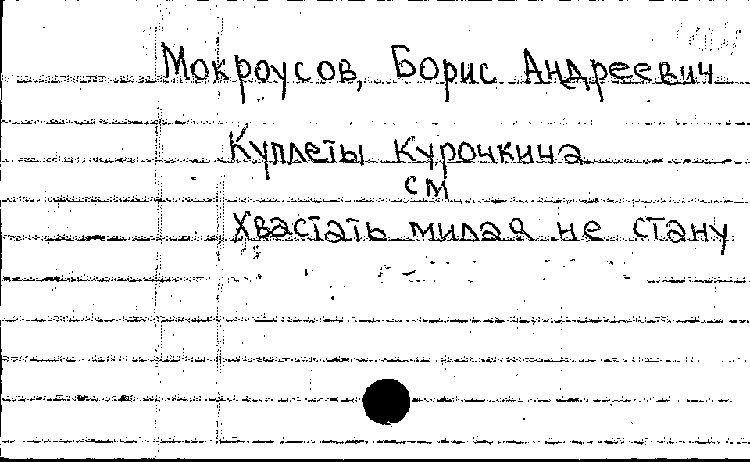 Мокроусов, Борис Андреевич
Куплеты Курочкина
см
Хвастать милая не стану